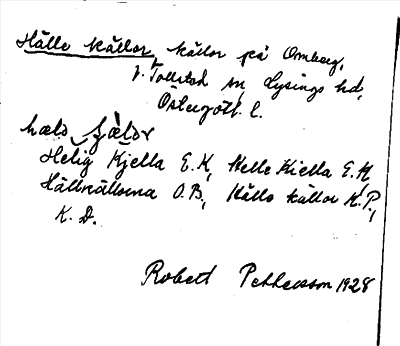 Hälle källor, källor på Omberg,
V. Tollstad sn Lysings hd,
Östergötl. l.
hælə ɕælər
Helig Kjella E.K, Helle Kiella E.K,
Hällnällorna O.B, Hälle källor K.P.,
K. D.
Robert Pettersson 1928